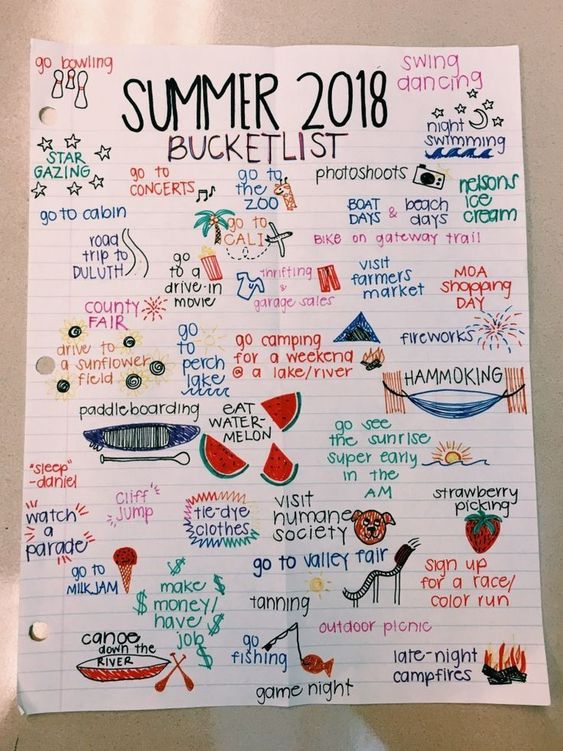 go bowling
SUMMER 2018
BUCKETLIST
swing
dancing
night
swimming
STAR
GAZING
go to
CONCERTS
go to
the
ZOO
photoshoots
nelsons
ice
cream
go to cabin
BOAT
DAYS & beach
days
go to
CALI
BIKE on gateway trail
road
trip to
DULUTH
go
to a
drive-in
movie
thrifting
&
garage sales
visit
farmers
market
MOA
shopping
DAY
county
FAIR
drive to
a sunflower
field
go
to
perch
lake
go camping
for a weekend
@ a lake/river
fireworks
HAMMOKING
paddleboarding
EAT
WATER-
MELON
go see
the sunrise
super early
in the
AM
"sleep"
-daniel
cliff
jump
tie-dye
clothes
visit
humane
society
strawberry
picking
watch
a
parade
go to
MILKJAM
make
money/
have
job
go to valley fair
tanning
sign up
for a race/
color run
outdoor picnic
canoe
down the
RIVER
go
fishing
game night
late-night
campfires